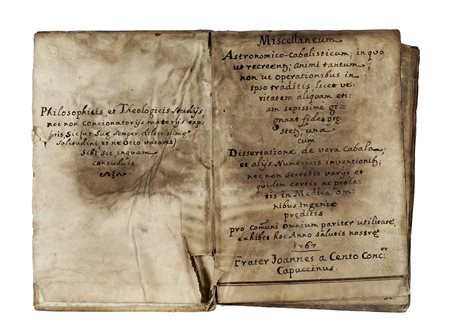 Philosophicis et Theologicis Studijs
nec non Concionatorijs materijs exple
tis sic ut suae semper dilectissimae
solitudini et ne Otio vacaret
sibi sic inquam
consuluit
Miscellaneum
Astronomico-Cabalisticum; in quo
ut recreent; animi tantum;
non ut operationibus in
ipso traditis licet ve:
ritatem aliquam eti:
am sepissime gi:
gnant fides pre:
stet; una
cum
Dissertatione de vera Cabala
et alys Numericis inventionib;
nec non secretis varys et
quidem certis ac proba:
tis in Medica om:
nibus ingenio
preditis
pro comuni Omnium pariter utilitate
exhibits hoc Anno Salutis nostre
1767
Frater Joannes a Cento Conc:or
Capuccinus.